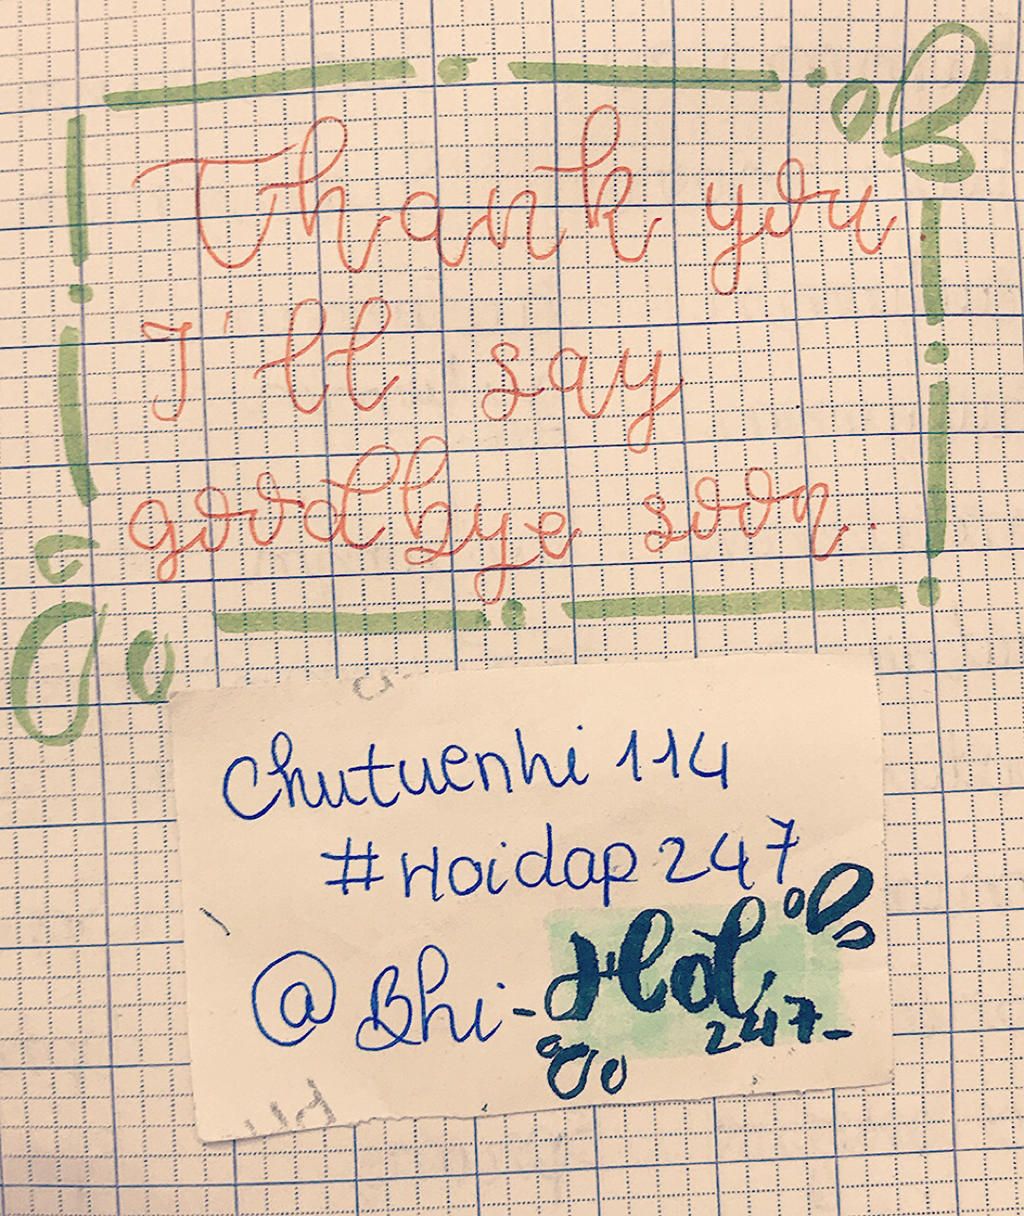 Thank you
I'll say
goodbye soon.
Chutuenhi 114
#Hoidap 247
@Bhi-Hd
247-